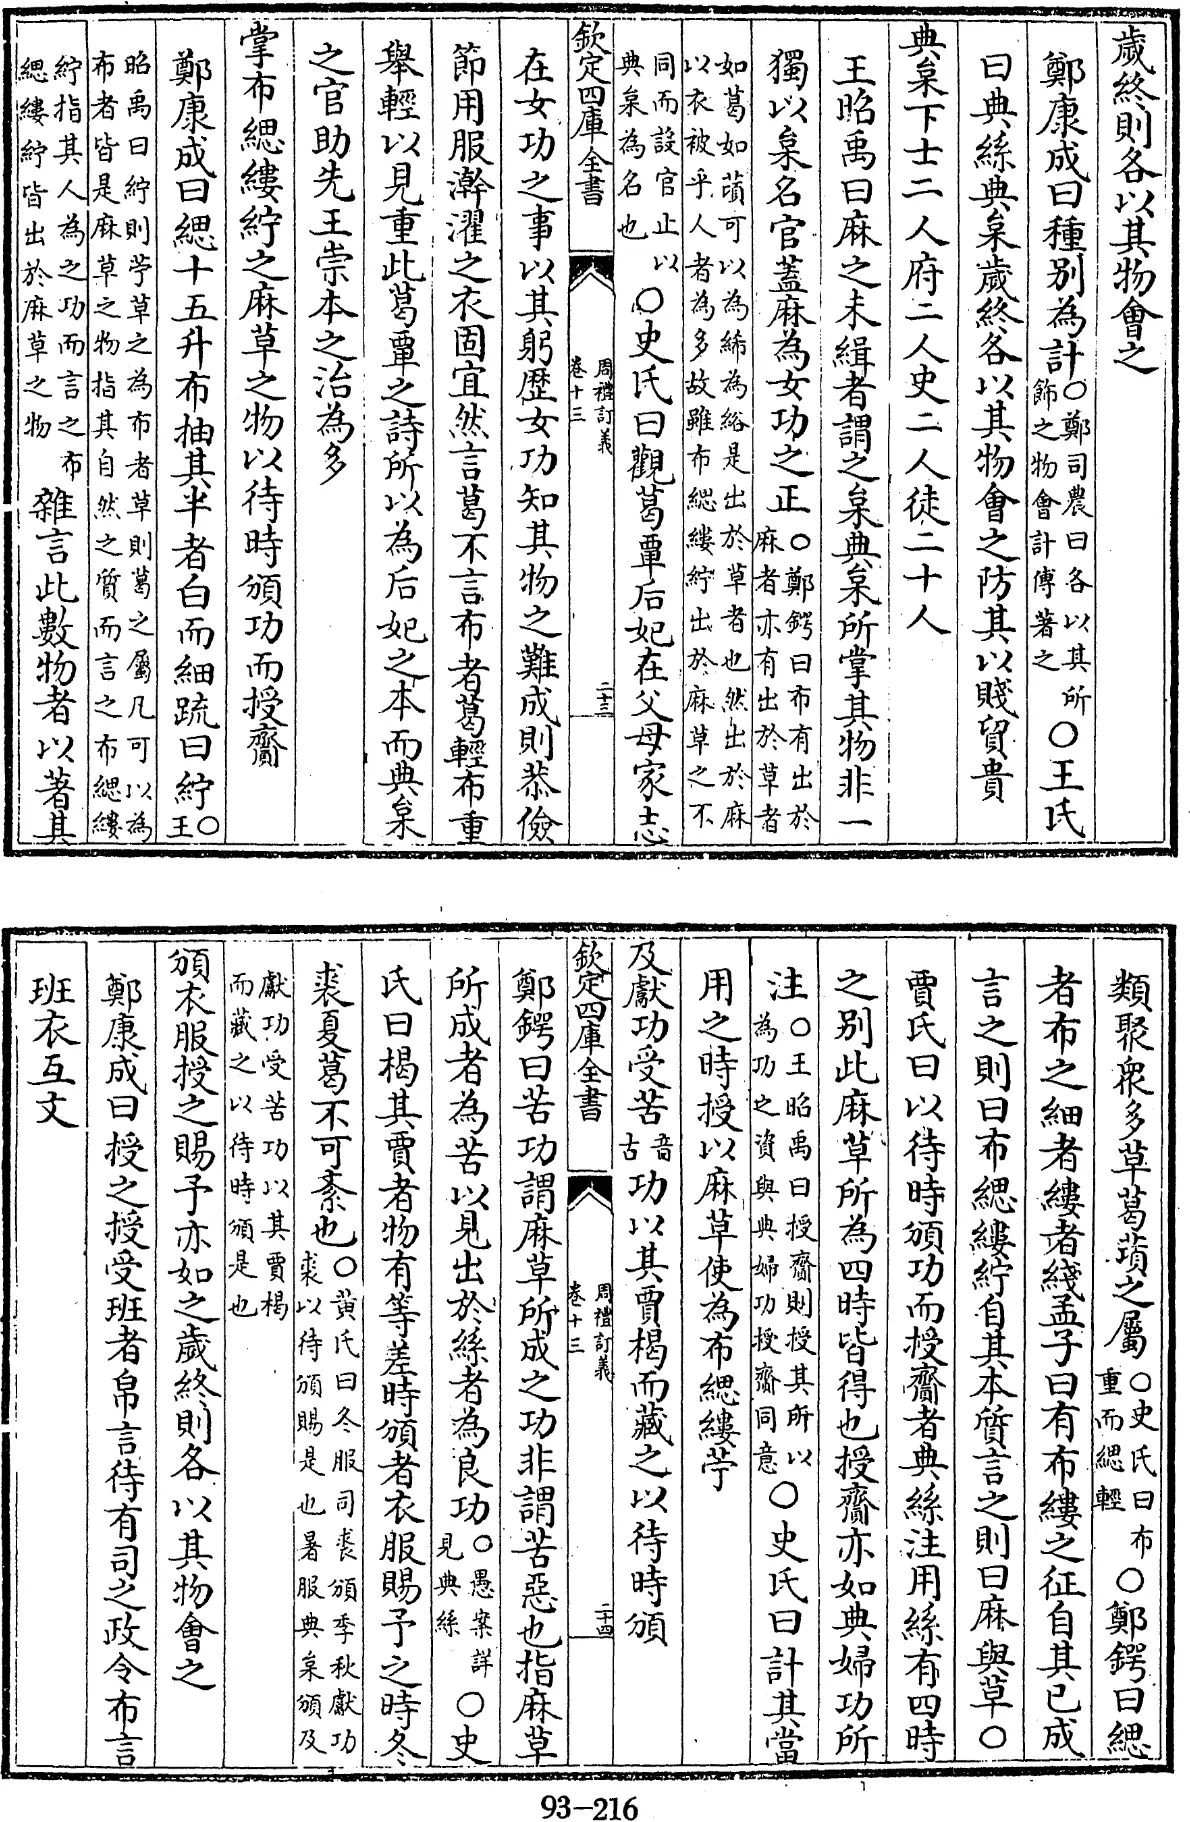 歲終則各以其物會之
鄭康成曰種別為計○鄭司農曰各以其所
飾之物會計傅著之○王氏
曰典絲典枲歲終各以其物會之防其以賤貿貴
典枲下士二人府二人史二人徒二十人
王昭禹曰麻之未緝者謂之枲典枲所掌其物非一
獨以枲名官蓋麻為女功之正○鄭鍔曰布有出於
麻者亦有出於草者
如葛如蕦可以為絺為綌是出於草者也然出於麻
以衣被乎人者為多故雖布緦縷紵出於麻草之不
同而設官止以
典枲為名也○史氏曰觀葛覃后妃在父母家志
欽定四庫全書
周禮訂義
卷十三
二十三
在女功之事以其躬歴女功知其物之難成則恭儉
節用服澣濯之衣固宜然言葛不言布者葛輕布重
舉輕以見重此葛覃之詩所以為后妃之本而典枲
之官助先王崇本之治為多
掌布緦縷紵之麻草之物以待時頒功而授齎
鄭康成曰緦十五升布抽其半者白而細疏曰紵○
王
昭禹曰紵則苧草之為布者草則葛之屬凡可以為
布者皆是麻草之物指其自然之質而言之布緦縷
紵指其人為之功而言之布
緦縷紵皆出於麻草之物雜言此數物者以著其
類聚衆多草葛蕦之屬○史氏曰布
重而緦輕○鄭鍔曰緦
者布之細者縷者綫孟子曰有布縷之征自其已成
言之則曰布緦縷紵自其本質言之則曰麻與草○
賈氏曰以待時頒功而授齎者典絲注用絲有四時
之別此麻草所為四時皆得也授齎亦如典婦功所
注○王昭禹曰授齎則授其所以
為功之資與典婦功授齎同意○史氏曰計其當
用之時授以麻草使為布緦縷苧
及獻功受苦音
古功以其賈楬而藏之以待時頒
欽定四庫全書
周禮訂義
卷十三
二十四
鄭鍔曰苦功謂麻草所成之功非謂苦惡也指麻草
所成者為苦以見出於絲者為良功○愚案詳
見典絲○史
氏曰楬其賈者物有等差時頒者衣服賜予之時冬
裘夏葛不可紊也○黄氏曰冬服司裘頒季秋獻功
裘以待頒賜是也暑服典枲頒及
獻功受苦功以其賈楬
而藏之以待時頒是也
頒衣服授之賜予亦如之歲終則各以其物會之
鄭康成曰授之授受班者帛言待有司之政令布言
班衣互文
93-216